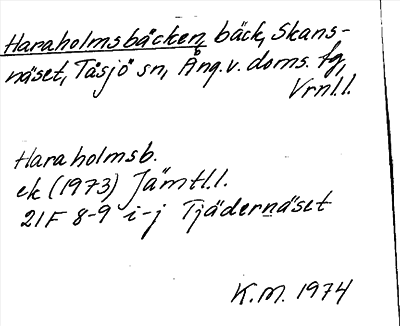 Haraholmsbäcken, bäck, Skans-
näset, Tåsjö sn, Ång.v. doms. tg,
Vrnl.l.
Haraholmsb.
ek (1973) Jämtl.l.
21F 8-9 i-j Tjädernäset
K.M. 1974